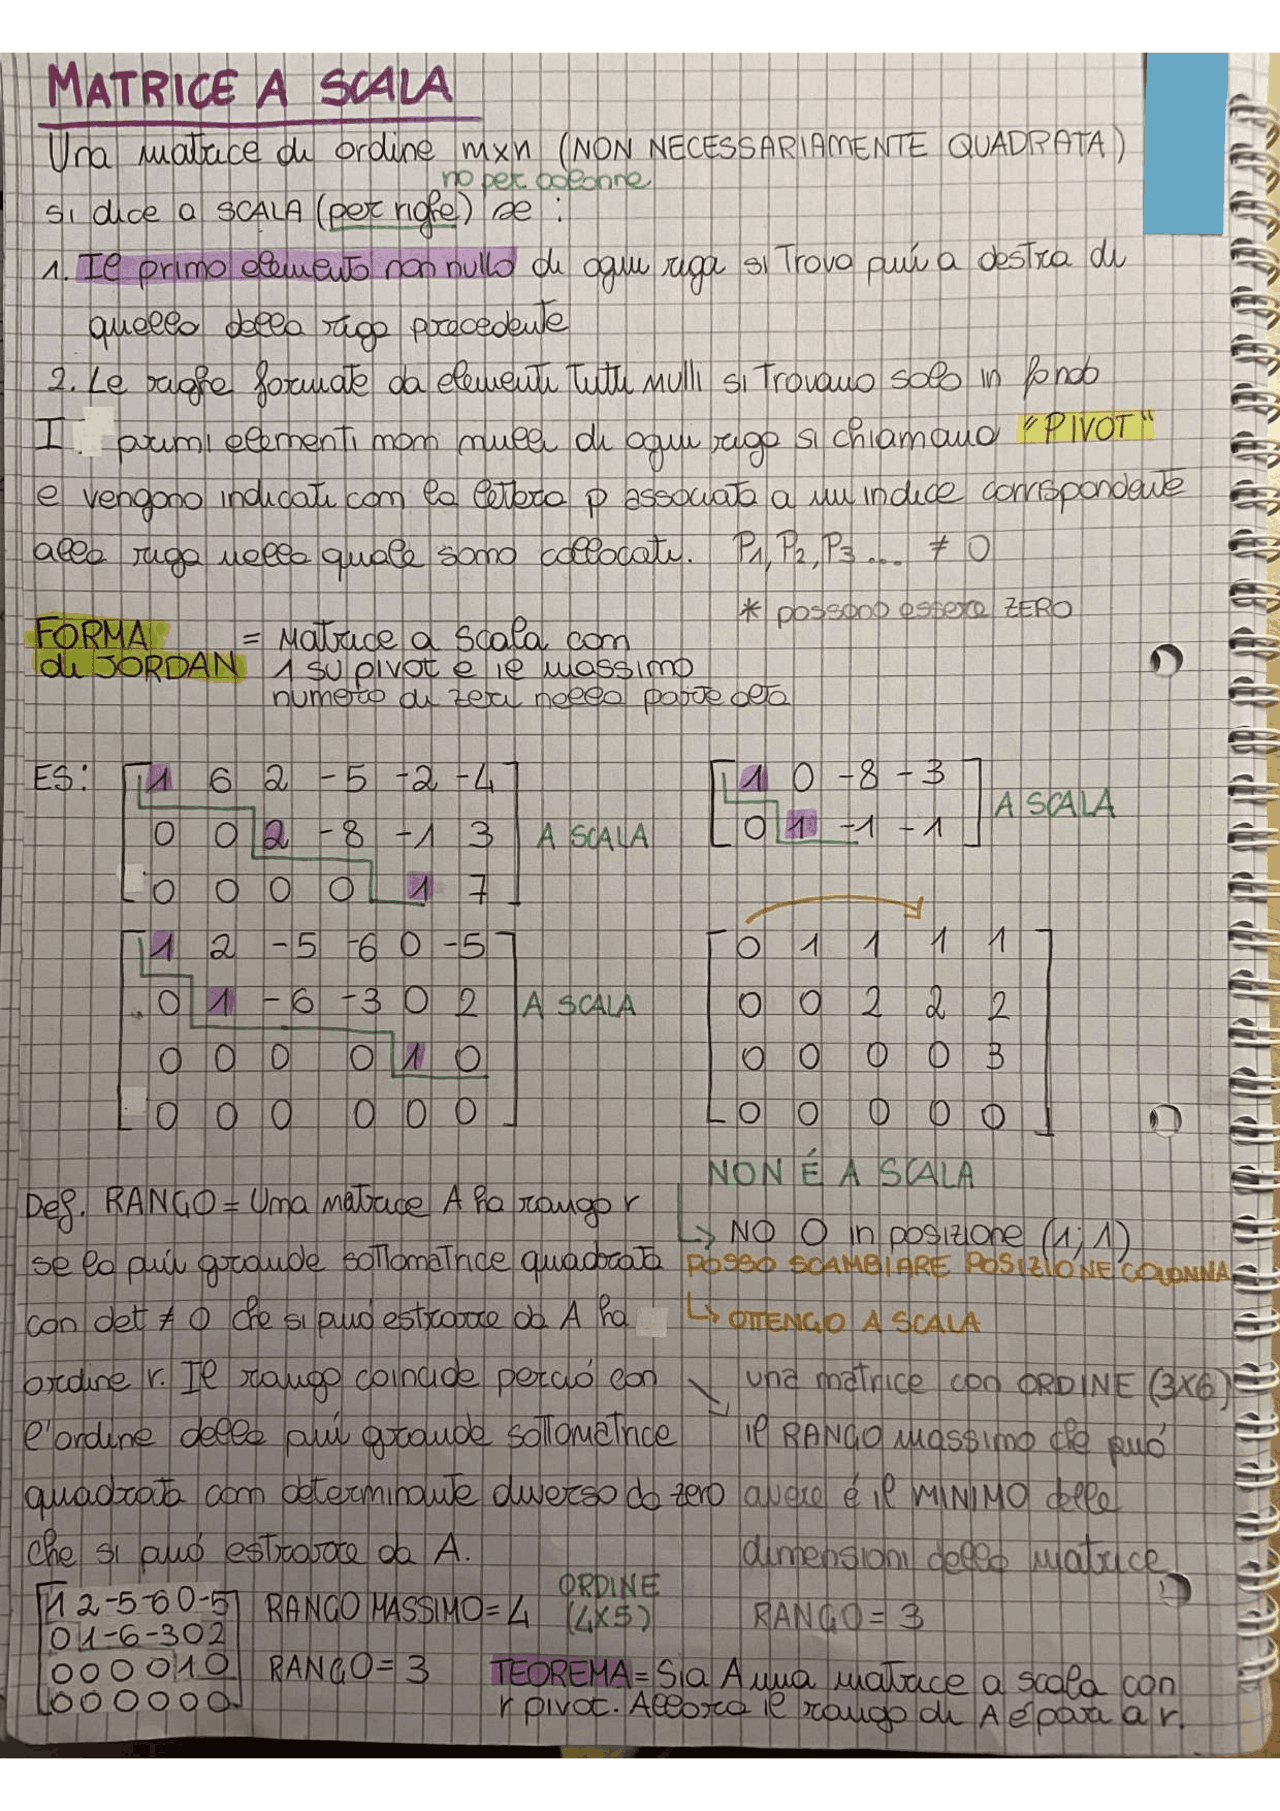 MATRICE A SCALA
Una matrice di ordine mxn (NON NECESSARIAMENTE QUADRATA)
no per colonne
si dice a SCALA (per righe) se :
1. Il primo elemento non nullo di ogni riga si trova più a destra di
quello della riga precedente
2. Le righe formate da elementi tutti nulli si trovano solo in fondo
I primi elementi non nulli di ogni riga si chiamano "PIVOT"
e vengono indicati con la lettera p associata a un indice corrispondente
alla riga nella quale sono collocati. P1, P2, P3... ≠ 0
* possono essere ZERO
FORMA = Matrice a scala con
di JORDAN 1 su pivot e il massimo
numero di zeri nella parte
ES:
1 6 2 -5 -2 -4
0 0 2 -8 -1 3 A SCALA
0 0 0 0 1 7
1 0 -8 -3
0 1 -1 -1 A SCALA
1 2 -5 -6 0 -5
0 1 -6 -3 0 2 A SCALA
0 0 0 0 1 0
0 0 0 0 0 0
0 1 1 1 1
0 0 2 2 2
0 0 0 0 3
0 0 0 0 0
NON É A SCALA
↳ NO 0 in posizione (1;1)
POSSO SCAMBIARE POSIZIONE COLONNA
↳ OTTENGO A SCALA
Def. RANGO = Una matrice A ha rango r
se la più grande sottomatrice quadrata
con det ≠ 0 che si può estrarre da A ha
ordine r. Il rango coincide perció con
l'ordine della più grande sottomatrice
quadrata con determinante diverso da zero
che si può estrarre da A.
una matrice con ORDINE (3x6)
il RANGO massimo che può
avere é il MINIMO delle
dimensioni della matrice
RANGO = 3
1 2 -5 -6 0 -5 RANGO MASSIMO = 4 ORDINE (4x5)
0 1 -6 -3 0 2
0 0 0 0 1 0 RANGO = 3
0 0 0 0 0 0
TEOREMA = Sia A una matrice a scala con
r pivot. Allora il rango di A é pari a r.